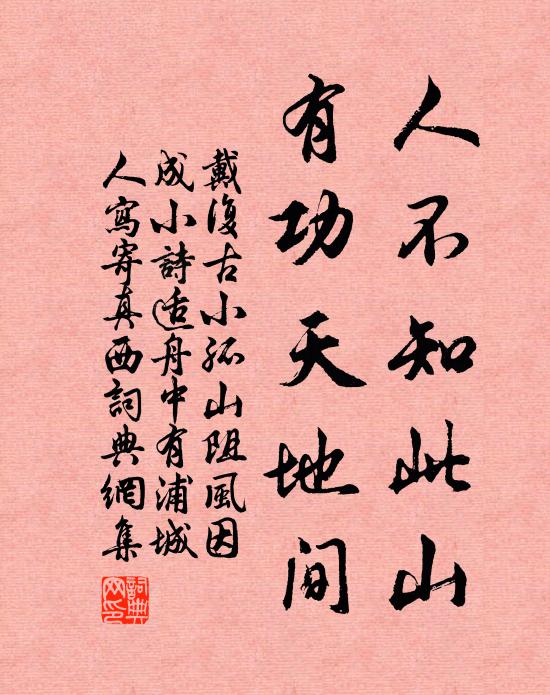 人不知此山
有功天地間
戴復古小孤山阻風因
成小詩适舟中有浦城
人寫寄真西詞典網集
詞典網印